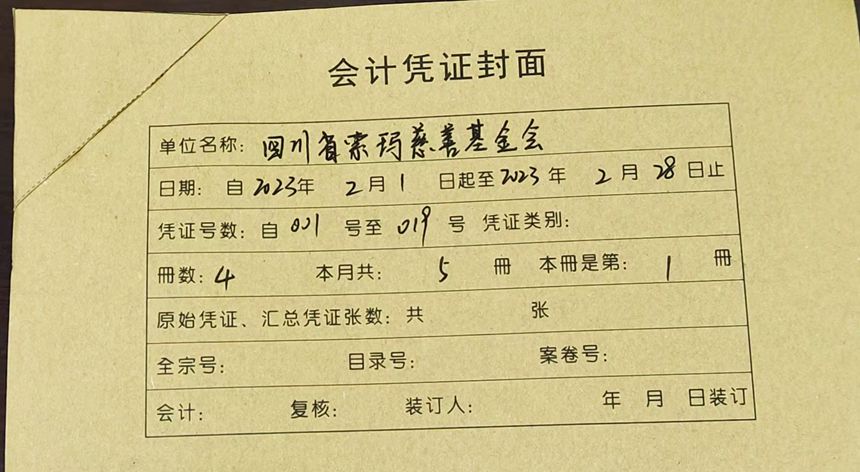 会计凭证封面
单位名称: 四川省索玛慈善基金会
日期: 自2023年 2月1 日起至2023年 2月28日止
凭证号数: 自001 号至019号 凭证类别:
冊数: 4 本月共: 5 冊 本冊是第: 1 冊
原始凭证、汇总凭证张数: 共 张
全宗号: 目录号: 案卷号:
会计: 复核: 装订人: 年 月 日装订